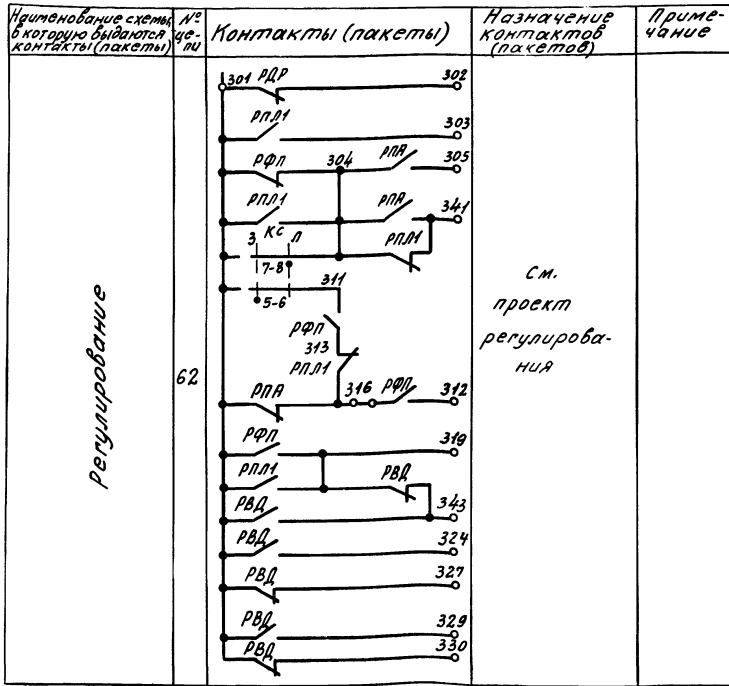 Наименование схемы,
в которую выдаются
контакты (пакеты)
№
це-
пи
Контакты (пакеты)
Назначение
контактов
(пакетов)
Приме-
чание
Регулирование
62
301 РДР 302
РПЛ1 303
РФП 304 РПА 305
РПЛ1 РПА 341
З КС Л РПЛ1
7-8
311
5-6
РФП
313
РПЛ1
РПА 316 РФП 312
РФП 319
РПЛ1 РВД
РВД 343
РВД 324
РВД 327
РВД 329
РВД 330
См.
проект
регулирова-
ния